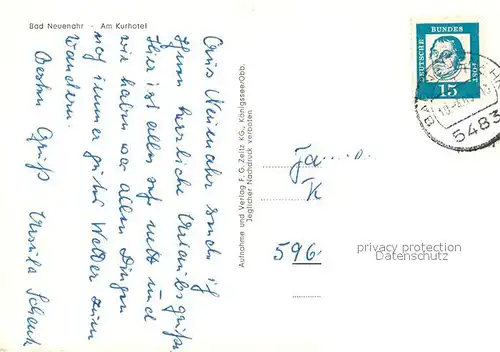 Bad Neuenahr - Am Kurhotel
Aus Neuenahr sende ich
Ihnen herzliche Urlaubsgrüße.
Hier ist alles sehr nett und
wir haben vor allen Dingen
noch immer gutes Wetter zum
Wandern.
Besten Gruß Ursula Schenk
Aufnahme und Verlag F. G. Zeitz KG., Königssee/Obb.
Jeglicher Nachdruck verboten
DEUTSCHE BUNDES POST
15
5483
Fa
K
596
privacy protection
Datenschutz